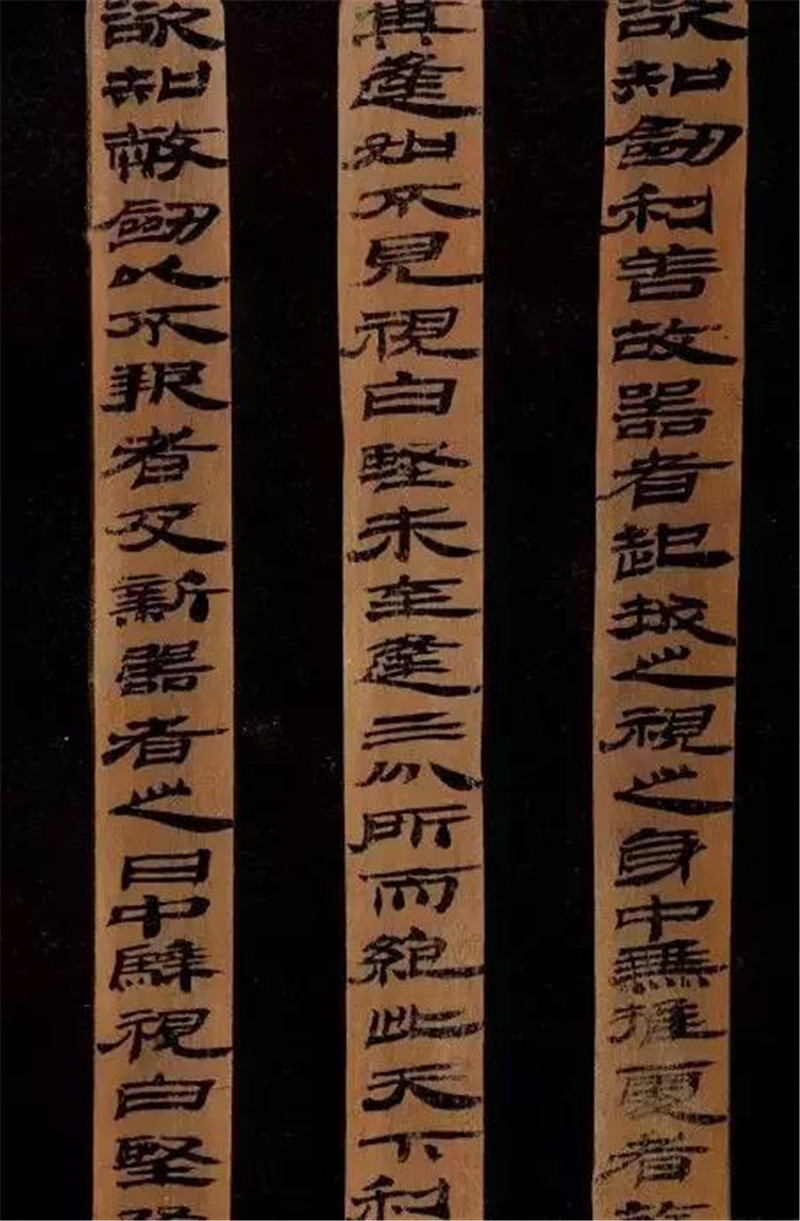 欲知劍利善故器者起拔之視之身中無推更者故
其逢如不見視白堅未至逢三分所而絕此天下利
欲知幣劍以不報者及新器者之日中騂視白堅